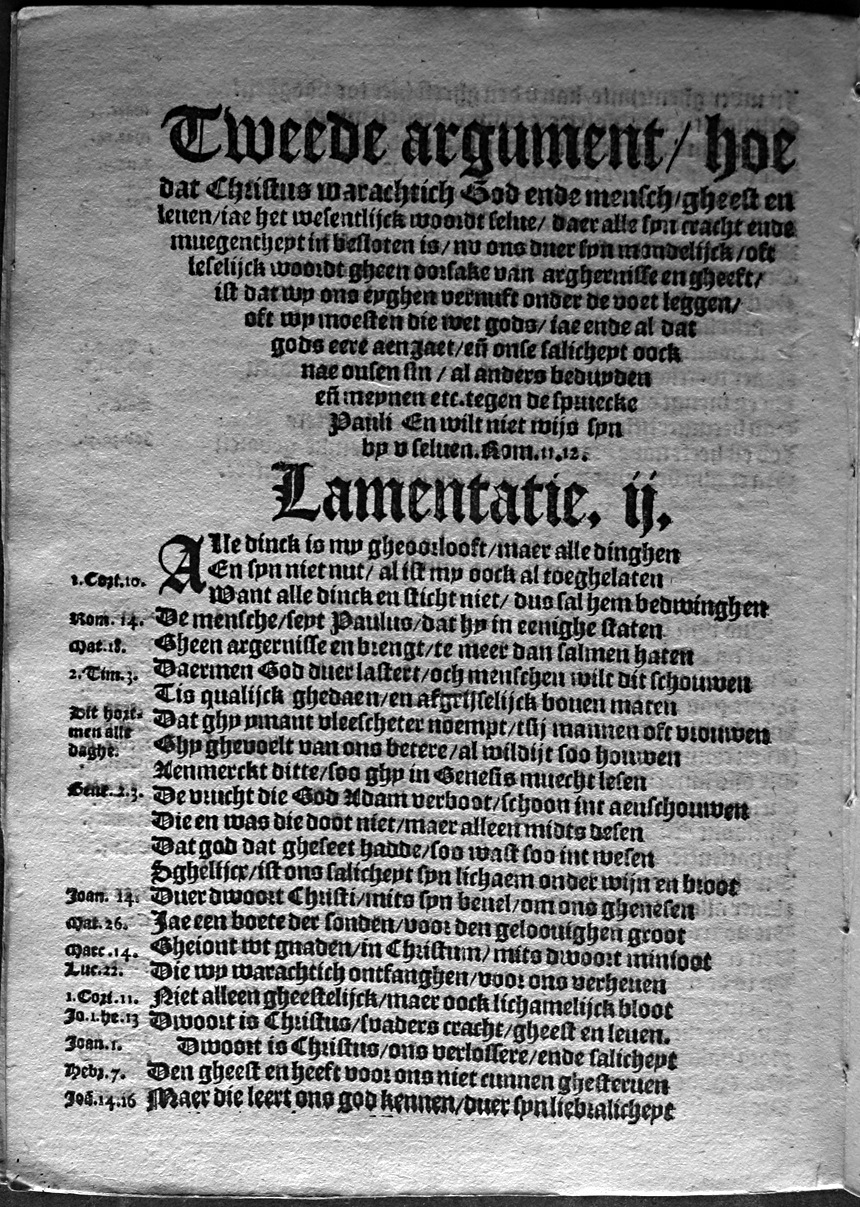 Tweede argument/ hoe
dat Christus warachtich God ende mensch/gheest en
leuen/iae het wesentlijck woordt selue/ daer alle syn cracht ende
muegentheyt in besloten is/ nv ons duer syn mondelijck /oft
leselijck woordt gheen oorsake van arghernisse en gheeft/
ist dat wy ons eyghen vernuft onder de voet leggen/
oft wy moesten die wet gods/ iae ende al dat
gods eere aengaet/en̄ onse salicheyt oock
nae onsen sin / al anders beduyden
en̄ meynen etc.tegen de spruecke
Pauli En wilt niet wijs syn
by v seluen.Rom.11.12.
Lamentatie. ij.
Alle dinck is my gheoorlooft/maer alle dinghen
1.Cori.10. En syn niet nut/ al ist my oock al toeghelaten
Want alle dinck en sticht niet/ dus sal hem bedwinghen
Rom. 14. De mensche/seyt Paulus/dat hy in eenighe staten
Mat.18. Gheen argernisse en brengt/te meer dan salmen haten
2.Tim.3. Daermen God duer lastert/och menschen wilt dit schouwen
Tis qualijck ghedaen/en afgrijselijck bouen maten
Dit hort- Dat ghy ymant vleescheter noempt/tsij mannen oft vrouwen
men alle
daghe. Ghy ghevoelt van ons betere/al wildijt soo houwen
Aenmerckt ditte/soo ghy in Genesis muecht lesen
Gene.2.3. De vrucht die God Adam verboot/schoon int aenschouwen
Die en was die doot niet/maer alleen midts desen
Dat god dat gheseet hadde/soo wast soo int wesen
Sghelijcx/ist ons salicheyt syn lichaem onder wijn en broot
Joan. 14. Duer dwoort Christi/mits syn beuel/om ons ghenesen
Mat.26. Jae een boete der sonden/voor den geloouighen groot
Marc.14. Gheiont wt gnaden/in Christum/ mits dwoort minioot
Luc.22. Die wy warachtich ontfanghen/voor ons verheuen
1.Cori.11. Niet alleen gheestelijck/maer oock lichamelijck bloot
Jo.1.he.13 Dwoort is Christus/svaders cracht/gheest en leuen.
Joan.1. Dwoort is Christus/ons verlossere/ende salicheyt
Hebr.7. Den gheest en heeft voor ons niet cunnen ghesteruen
Joā.14.16 Maer die leert ons god kennen/duer syn liebralicheyt